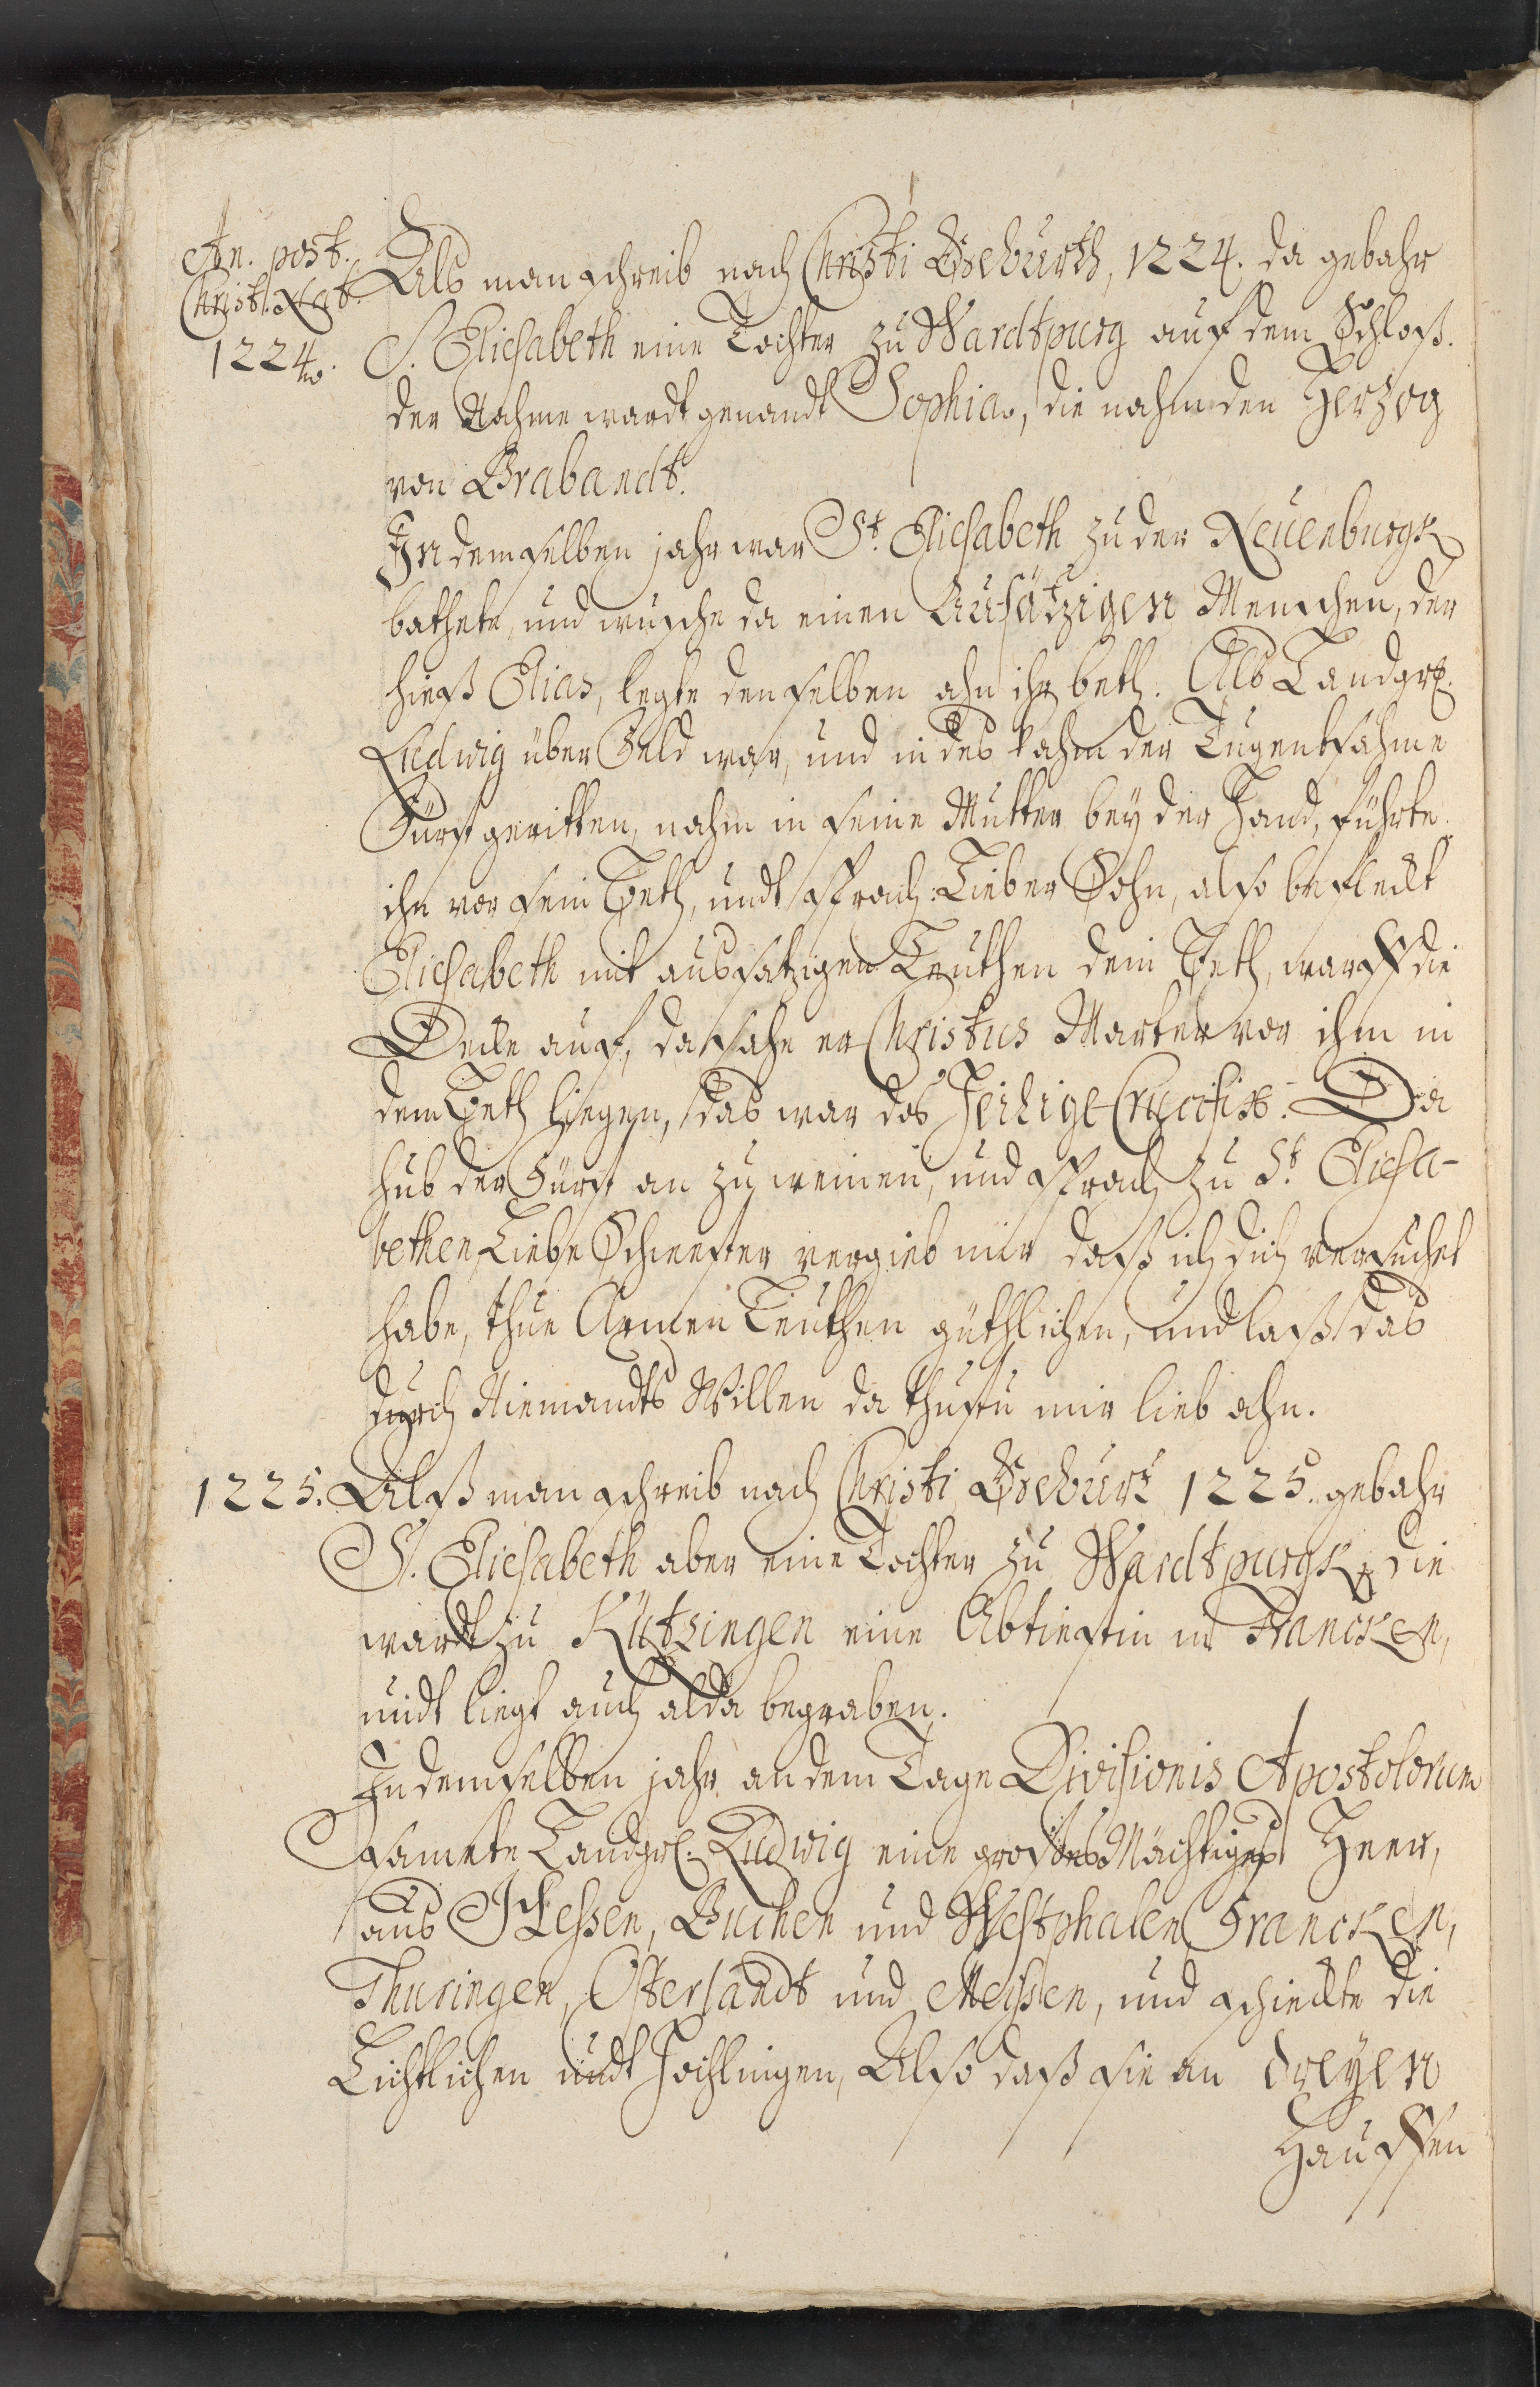 An. post.
Christ. Nat.
1224.
Als man schreib nach Christi Gebürth, 1224. da gebahr
S. Eliesabeth eine Tochter zu Wardtpurg auf dem Schloß.
der Nahme wardt genandt Sophia, die nahm den Hertzog
von Brabandt.
In demselben jahr war St. Eliesabeth zu der Neuenburgk
bathete, und wusche da einen Aussätzigen Menschen, der
hieß Elias, legte denselben ahn ihr beth. Als Landgrf.
Ludwig über Feld war, und in des kahm der Tugentsahme
Fürst geritten, nahm in seine Mutter bey der Hand, führte
ihn vor sein Beth, undt sprach: Lieber Sohn, also befleckt
Eliesabeth mit aussatzigen Leuthen dein Beth, warff die
Decke auf, da sahe er Christus Marter vor ihm in
dem Beth liegen, das war das Heilige Crucifix. Da
hub der Fürst an zu weinen, und sprach zu St. Eliesa-
bethen Liebe Schwester vergieb mir daß ich dich versuchet
habe, thue Armen Leuthen güthlichen, und laß das
durch Niemandts Willen da thustu mir lieb ahn.
1225. Alß man schreib nach Christi Geburt 1225. gebahr
S. Eliesabeth aber eine Tochter zu Wardtpurgk, die
wardt zu Kützingen eine Abtiestin in Francken,
undt liegt auch alda begraben.
In demselben jahr an dem Tage Divisionis Apostolorum
samete Landgrf. Ludwig eine großes Mächtiges Heer,
aus Hessen, Buchen und Westphalen Francken,
Thuringen, Osterlandt und Meissen, und schickte die
Lichtlichen undt Hochlingen, Also daß sie an dreyen
Hauffen